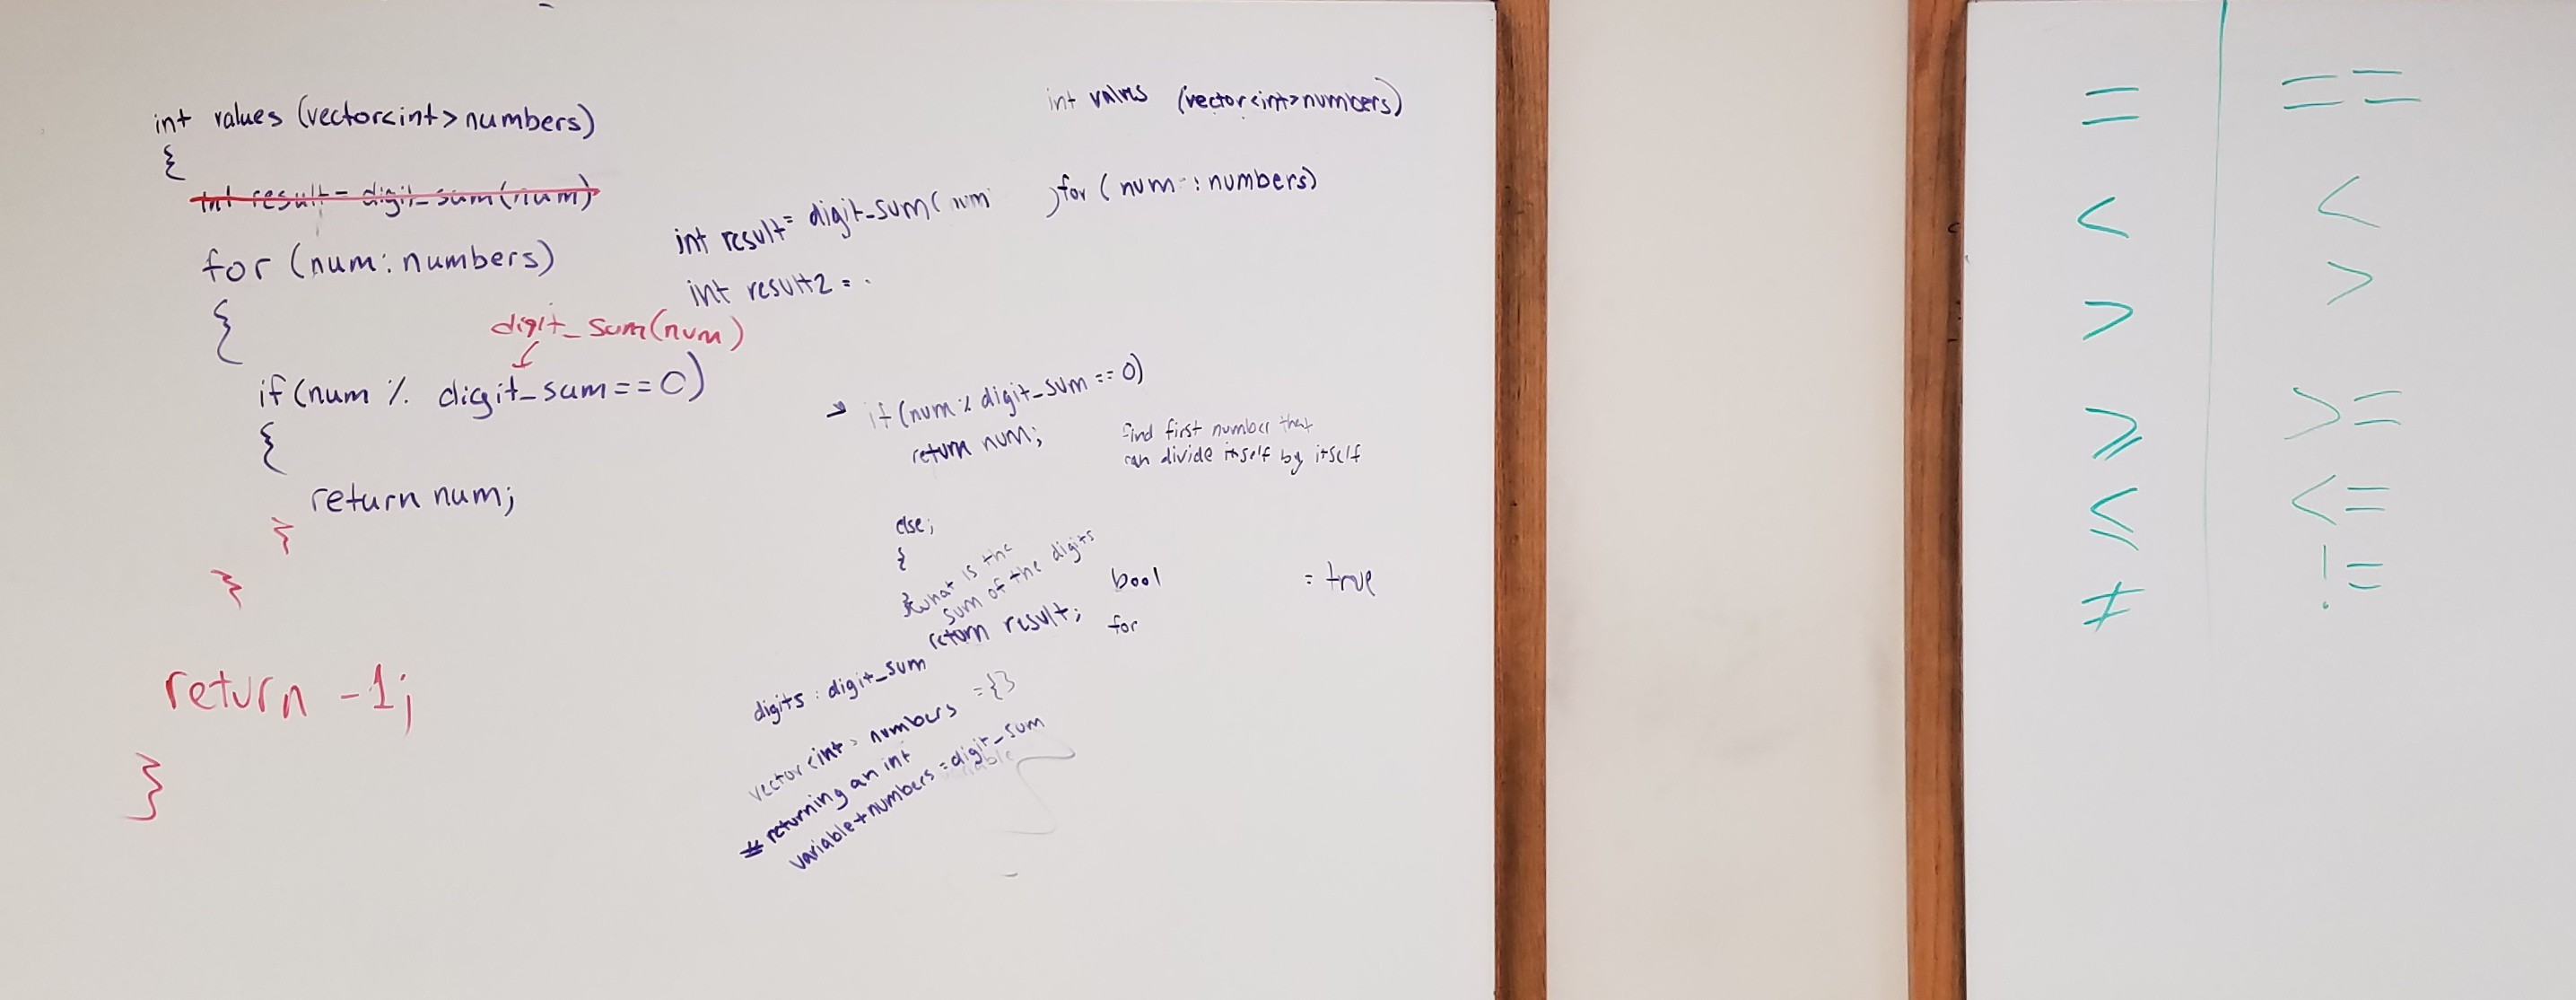 int values (vector<int> numbers)
{
int result = digit_sum(num)
for (num : numbers)
{
digit_sum(num)
if (num % digit_sum == 0)
{
return num;
}
}
return -1;
}
int values (vector<int> numbers)
int result = digit_sum( num ) for ( num : numbers)
int result2 =
if (num % digit_sum == 0)
return num;
find first number that
can divide itself by itself
else;
{
} what is the
sum of the digits
return result;
bool = true
for
digits : digit_sum
vector<int> numbers = {}
returning an int
variable + numbers = digit_sum
variable
= ==
< <
> >
≥ >=
≤ <=
≠ !=